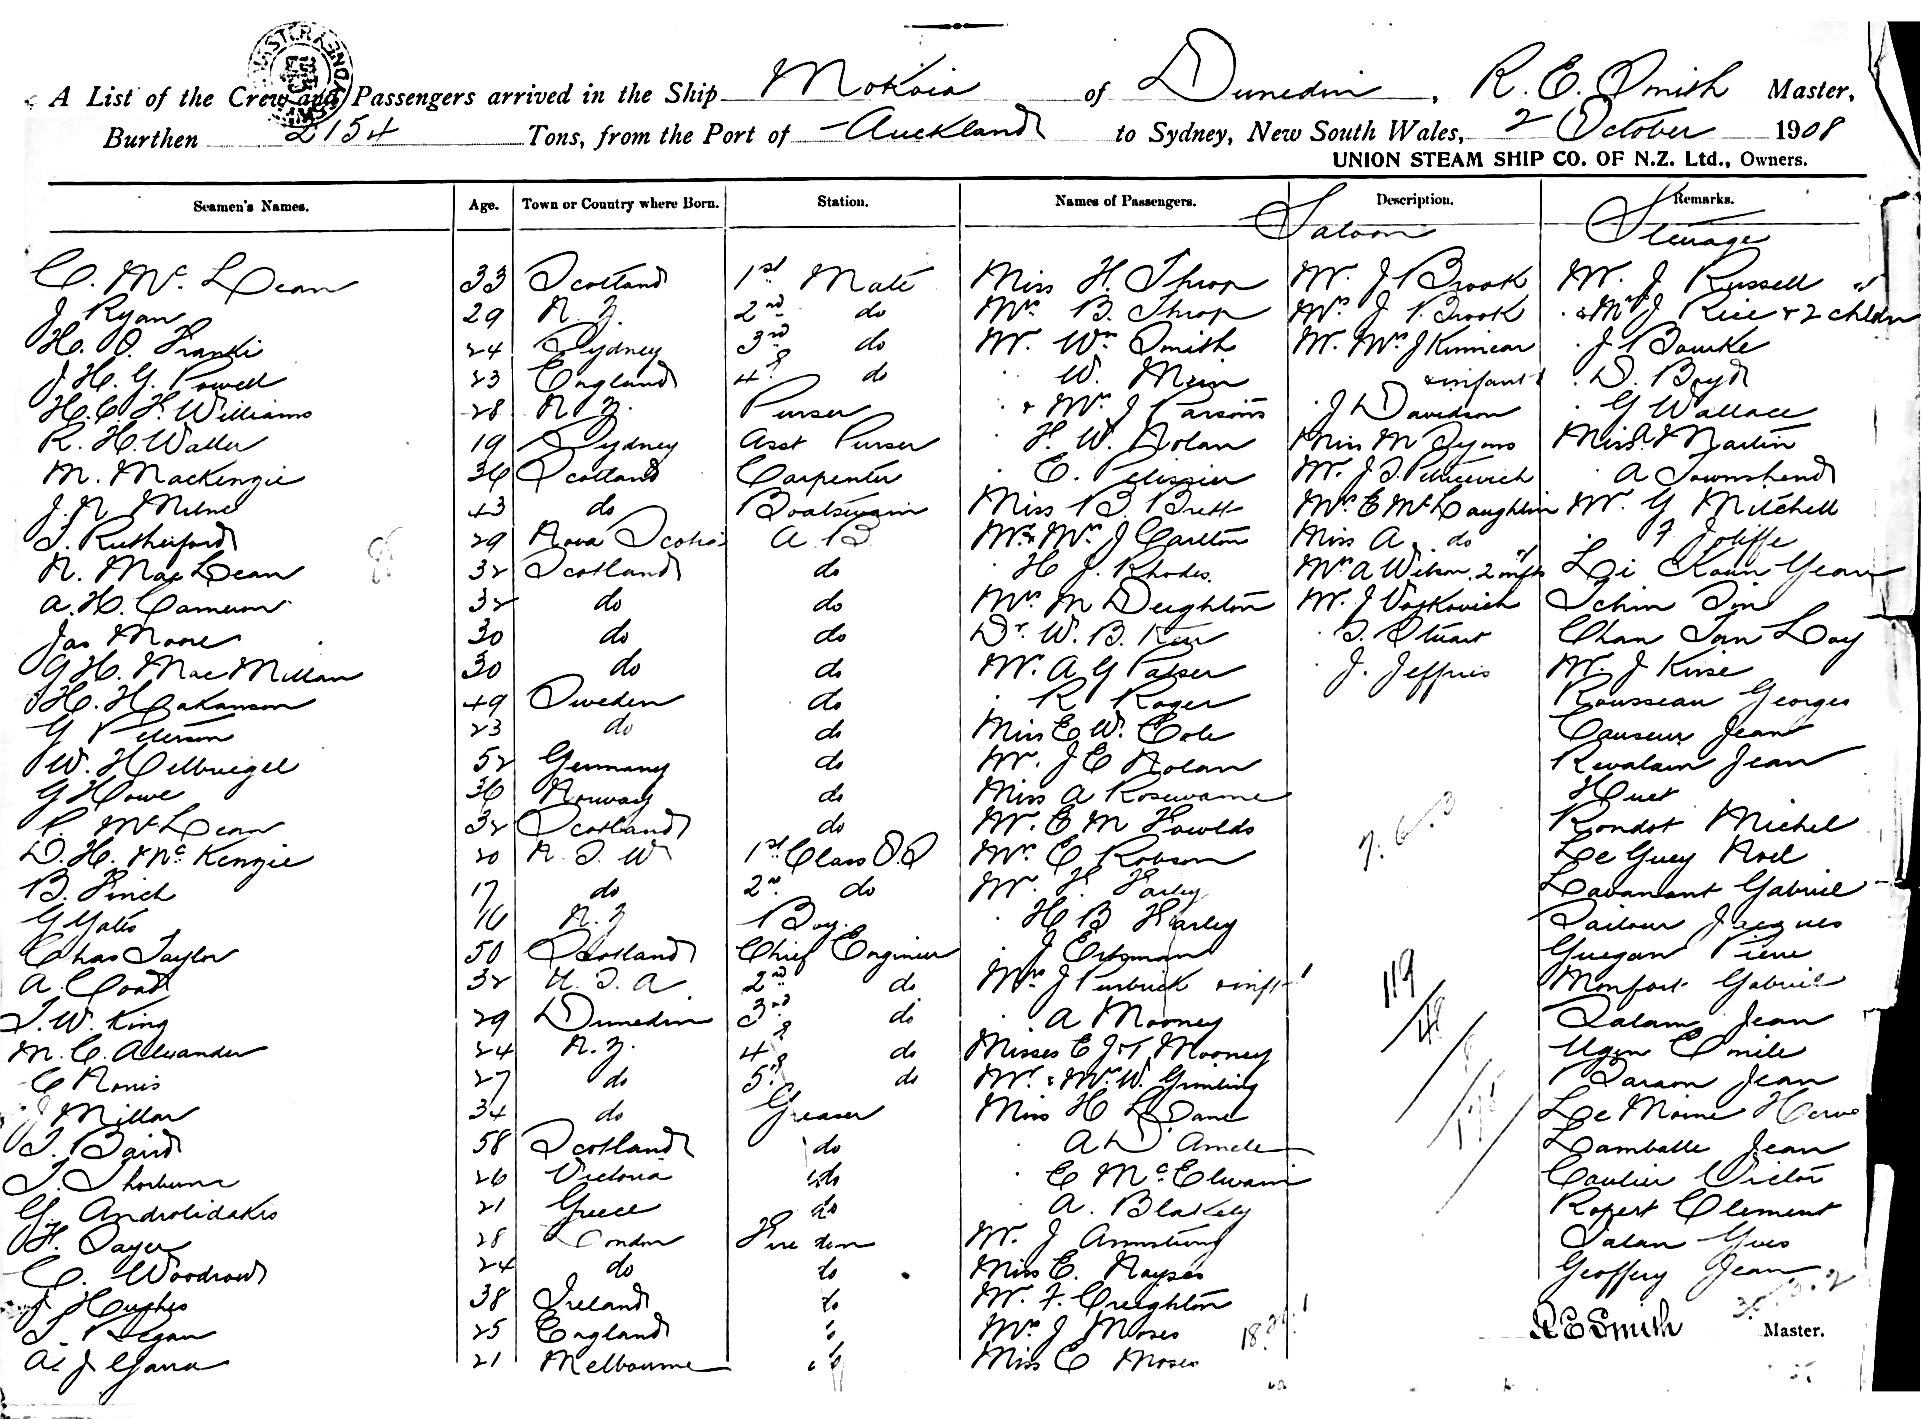 A List of the Crew and Passengers arrived in the Ship Mokoia of Dunedin, R. E. Smith Master,
Burthen 2154 Tons, from the Port of Auckland to Sydney, New South Wales, 2 October 1908
UNION STEAM SHIP CO. OF N.Z. Ltd., Owners.
Seamen's Names. Age. Town or Country where Born. Station. Names of Passengers. Description. Remarks.
Saloon Steerage
C. Mc Lean 33 Scotland 1st Mate Miss H. Throp Mr. J Brook Mr. J Russell
J Ryan 29 N. Z. 2nd do Mrs B. Throp Mrs J Brook & Mrs J Rice & 2 childn
H. O. Franki 24 Sydney 3rd do Mr. Wm Smith Mr. Mrs J Kinnear J Bourke
J H. G. Powell 23 England 4th do W. Mein & infant D. Boyd
H. C. F. Williams 28 N. Z. Purser & Mrs J Parsons J Davidson G Wallace
R. H. Waller 19 Sydney Asst Purser F. W. Nolan Miss M Lyons Miss Martin
M. Mackenzie 36 Scotland Carpenter C. Pelissier Mr. J. A Townshend
J. N. Milne 43 do Boatswain Miss B. Brett Mrs E McLaughlin Mr. G Mitchell
T. Rutherford 29 Nova Scotia A. B. Mr & Mrs J Carlton Miss A. do F Joliffe
N. MacLean 32 Scotland do H J. Rhodes. Mrs A Wilson 2 infts
A. H. Cameron 32 do do Mrs M Deighton Mr. J Voskovich
Jas Moore 30 do do Dr. W. B. Kerr Stuart Chan Loy
G H. MacMillan 30 do do Mr. A G J. Jeffries Mr. J
H. Hakanson 49 Sweden do R Roger Rousseau Georges
G Peterson 23 do do Miss E W. Cole Causeur Jean
W. 52 Germany do Mr. J C Nolan Revalain Jean
G Howe 36 Norway do Miss A Rosewarne Huet
P. McLean 32 Scotland do Mr. E M Fowlds Rondot Michel
D. H. Mc Kenzie 20 N. S. W 1st Class O.S Mrs E Robson Le Guey Noel
B. Finch 17 do 2nd do Mr. F. Farley Lavanant Gabriel
G Yates 16 N. Z Boy. H B Harley Jacques
Chas Taylor 50 Scotland Chief Engineer J Guegan Pierre
A. Coad 32 U. S. A. 2nd do Mrs J Purbrick & inft 1 119 Monfort Gabriel
T. W. King 29 Dunedin 3rd do A Mooney 48 Salam Jean
M. C. Alexander 24 N. Z. 4th do Misses E J & T Mooney Emile
C Norris 27 do 5th do Mr. & Mrs W. Jean
J Millar 34 do Greaser Miss H L Dane Le Moine Herve
T. Baird 58 Scotland do A D' Lamballe Jean
T. Thorburn 26 Victoria do E McElwain Victor
G. Androlidakis 21 Greece do A. Blakely Ropert Clement
F. Sayer 28 London Fireman Mr. J Armstrong Salan Yves
C. Woodrow 24 do do Miss E. Geoffery Jean
J Hughes 38 Ireland do Mr. F. Creighton
T. 25 England do Mrs J Moses R E Smith Master.
21 Melbourne do Miss E Moses